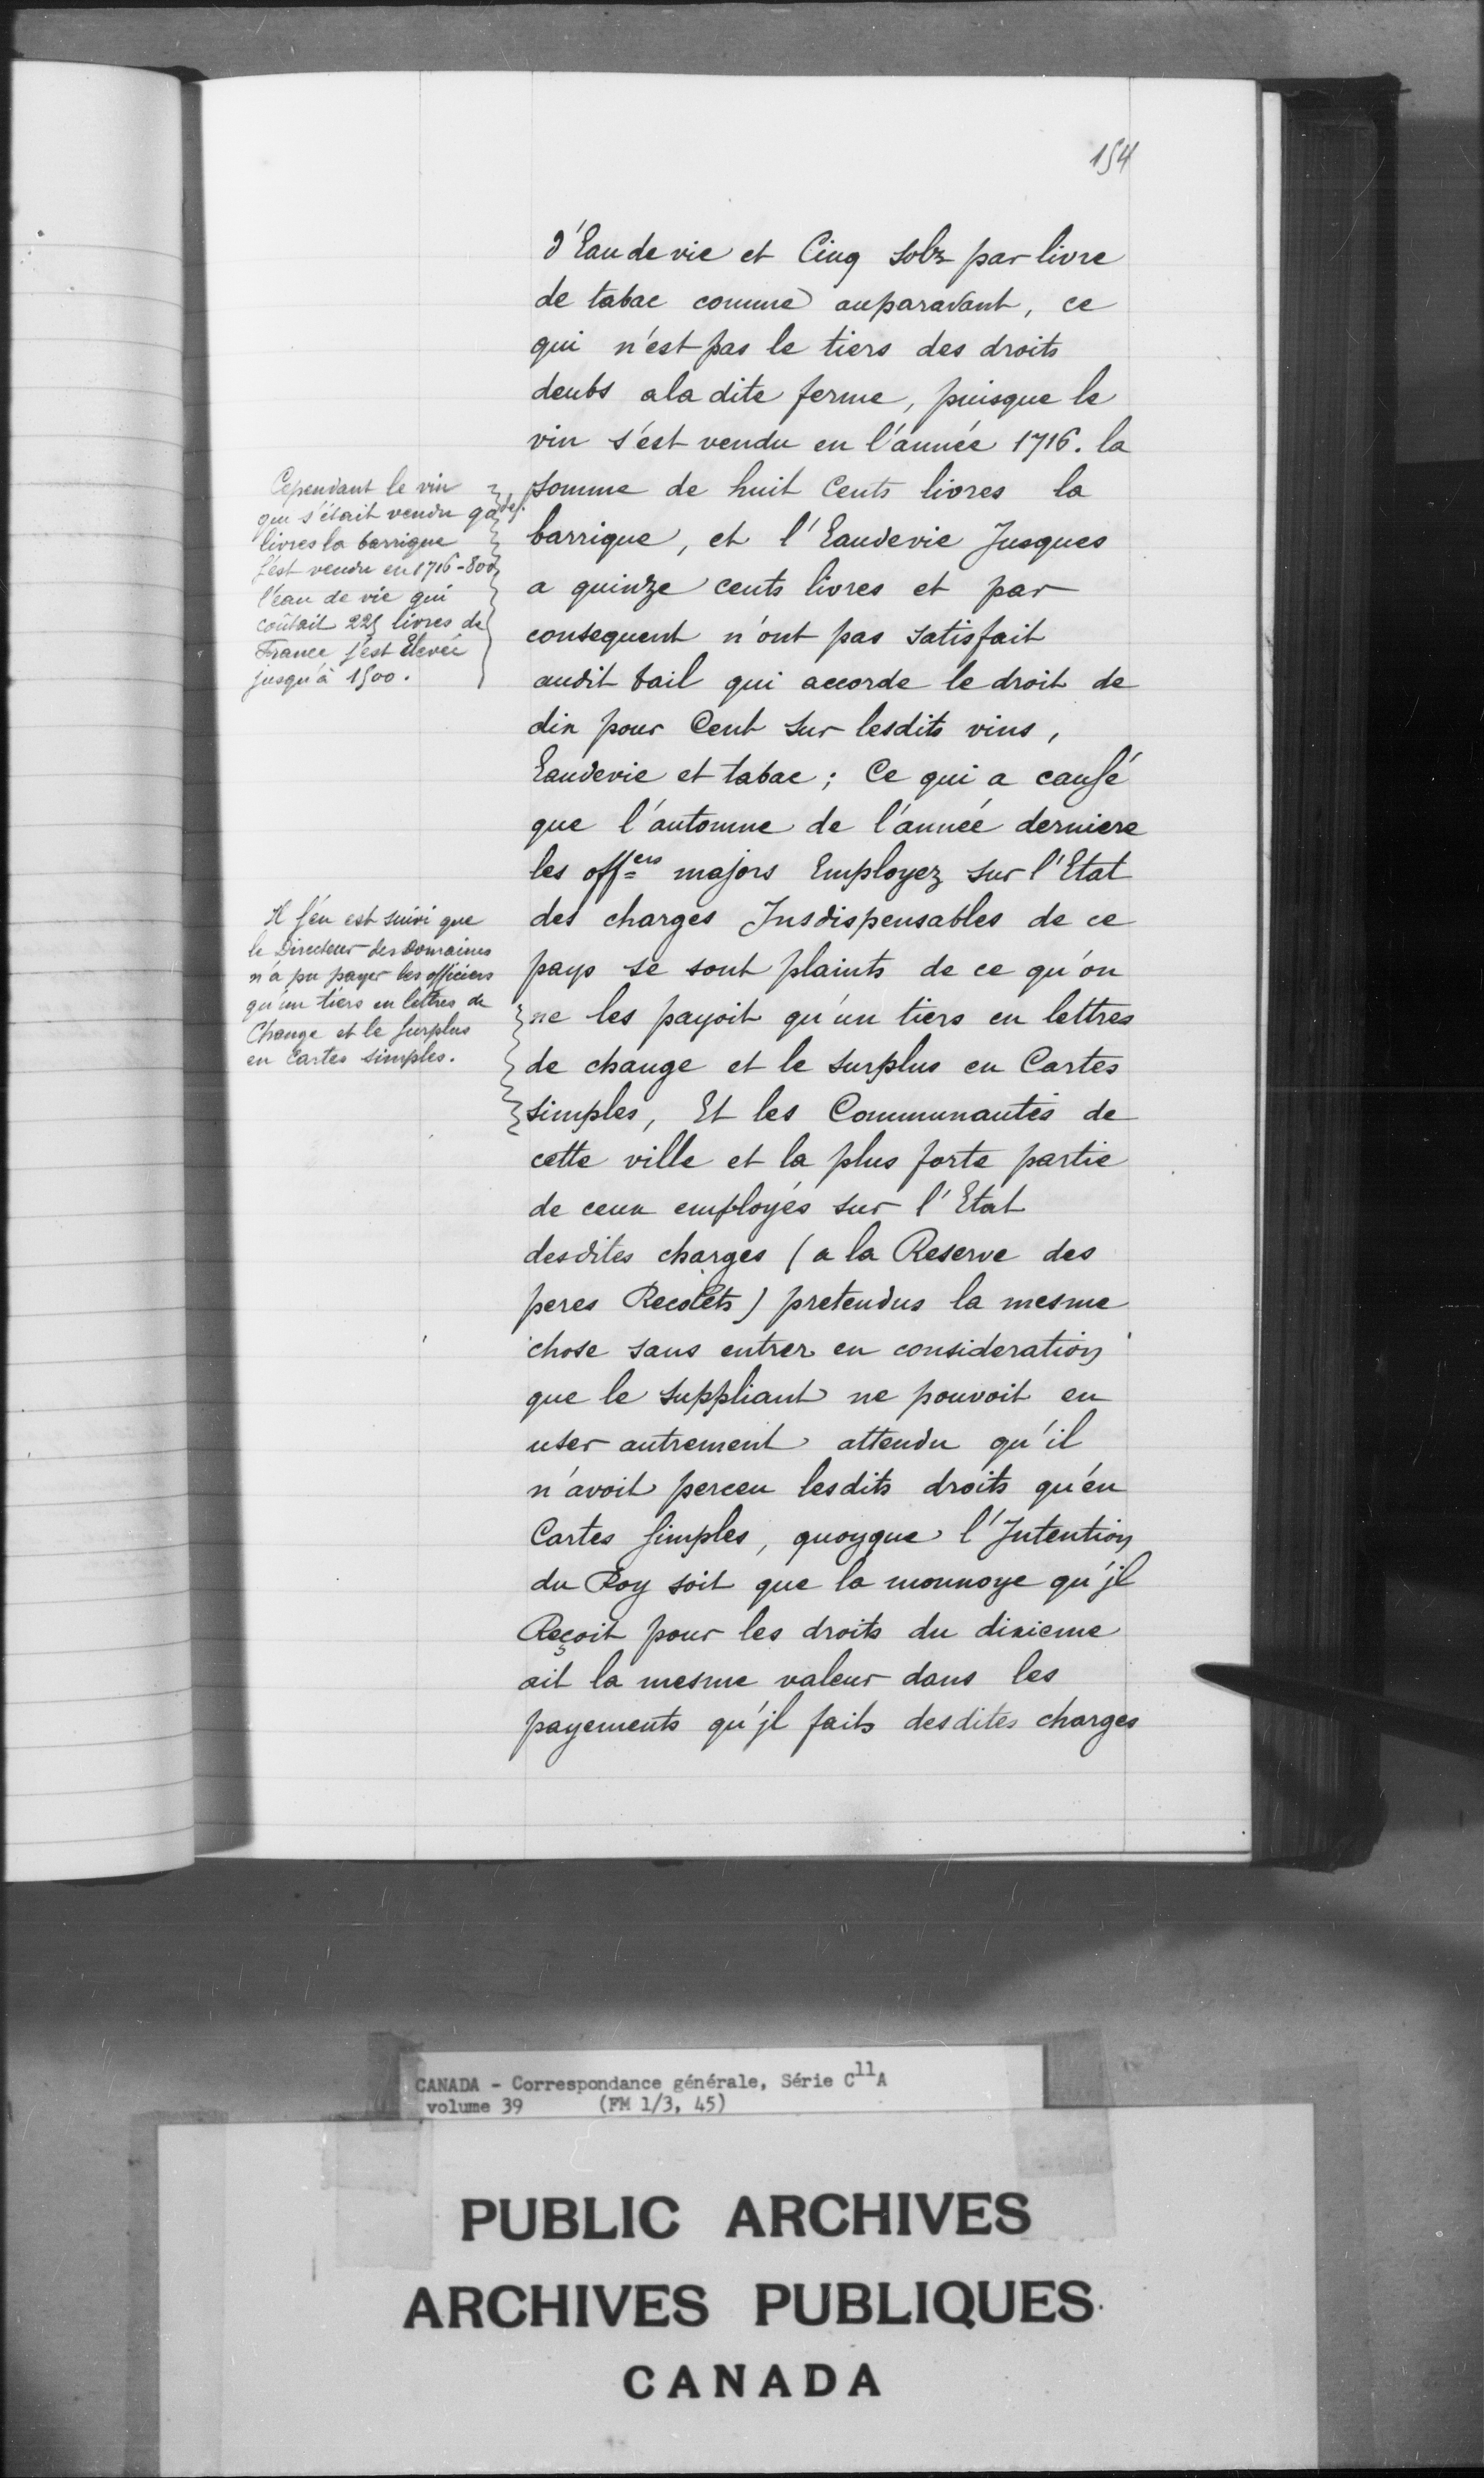 154
d'Eau de vie et Cinq solz par livre
de tabac comme auparavant, ce
qui n'est pas le tiers des droits
deubs a la dite ferme, puisque le
vin s'est vendu en l'année 1716. la
somme de huit Cents livres la
barrique, et l'Eaudevie Jusques
a quinze cents livres et par
consequent n'ont pas satisfait
audit bail qui accorde le droit de
dix pour Cent sur lesdits vins,
Eaudevie et tabac; Ce qui a causé
que l'automne de l'année derniere
les offers majors Employez sur l'Etat
des charges Insdispensables de ce
pays se sont plaints de ce qu'on
ne les payoit qu'un tiers en lettres
de change et le surplus en Cartes
simples, Et les Communautés de
cette ville et la plus forte partie
de ceux employés sur l'Etat
desdites charges (a la Reserve des
peres Recolets) pretendus la mesme
chose sans entrer en consideration
que le suppliant ne pouvoit en
user autrement attendu qu'il
n'avoit perceu lesdits droits qu'en
Cartes simples, quoyque l'Intention
du Roy soit que la monnoye qu'jl
Reçoit pour les droits du dixieme
ait la mesme valeur dans les
payements qu'jl faits desdites charges
Cependant le vin
qui s'était vendu
livres la barrique
s'est vendu en 1716 - 800
l'eau de vie qui
coûtait 225 livres de
France s'est Elevée
jusqu'à 1500.
Il s'en est suivi que
le Directeur des Domaines
n'a pu payer les officiers
qu'un tiers en lettres de
Change et le surplus
en Cartes simples.
CANADA - Correspondance générale, Série C11A
volume 39 (FM 1/3, 45)
PUBLIC ARCHIVES
ARCHIVES PUBLIQUES
CANADA